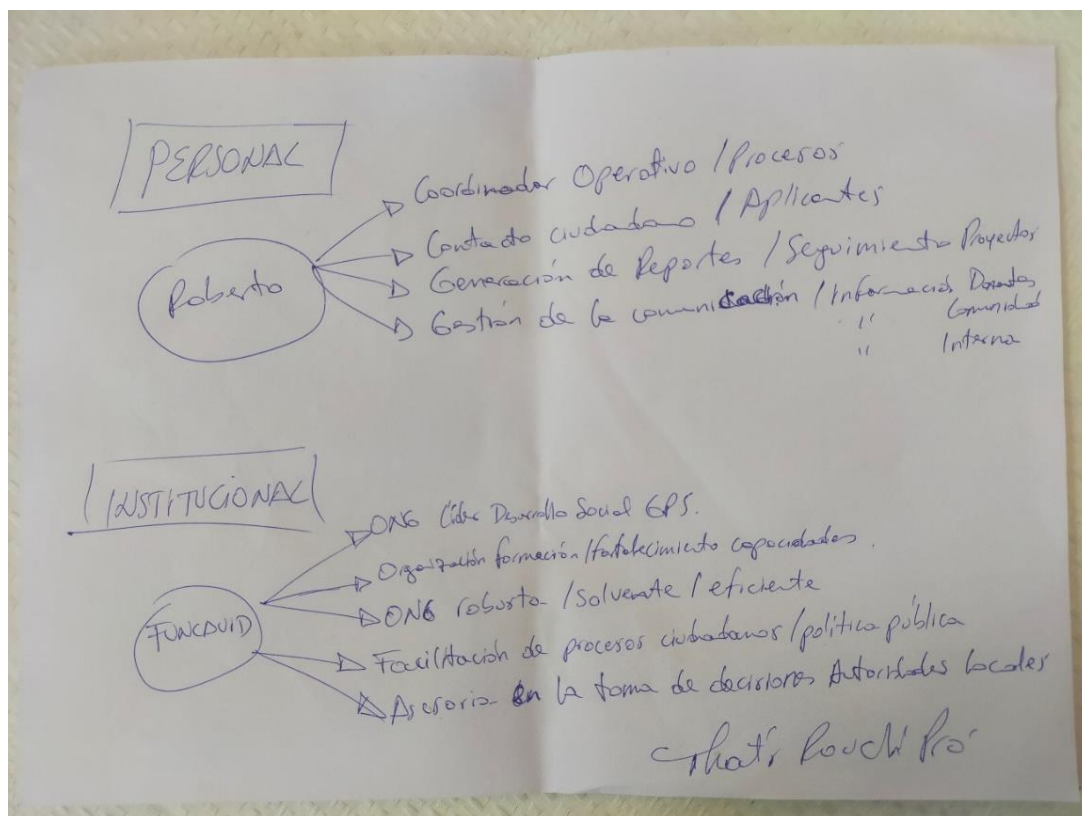 PERSONAL
Roberto
Coordinador Operativo / Procesos
Contacto ciudadano / Aplicantes
Generación de Reportes / Seguimiento Proyectos
Gestión de la comunicación / Información Donantes
" Comunidad
" Interna
INSTITUCIONAL
FUNCAVID
ONG Líder Desarrollo Social GPS.
Organización formación / fortalecimiento capacidades.
ONG robusta / Solvente / eficiente
Facilitación de procesos ciudadanos / política pública
Asesoria en la toma de decisiones Autoridades locales